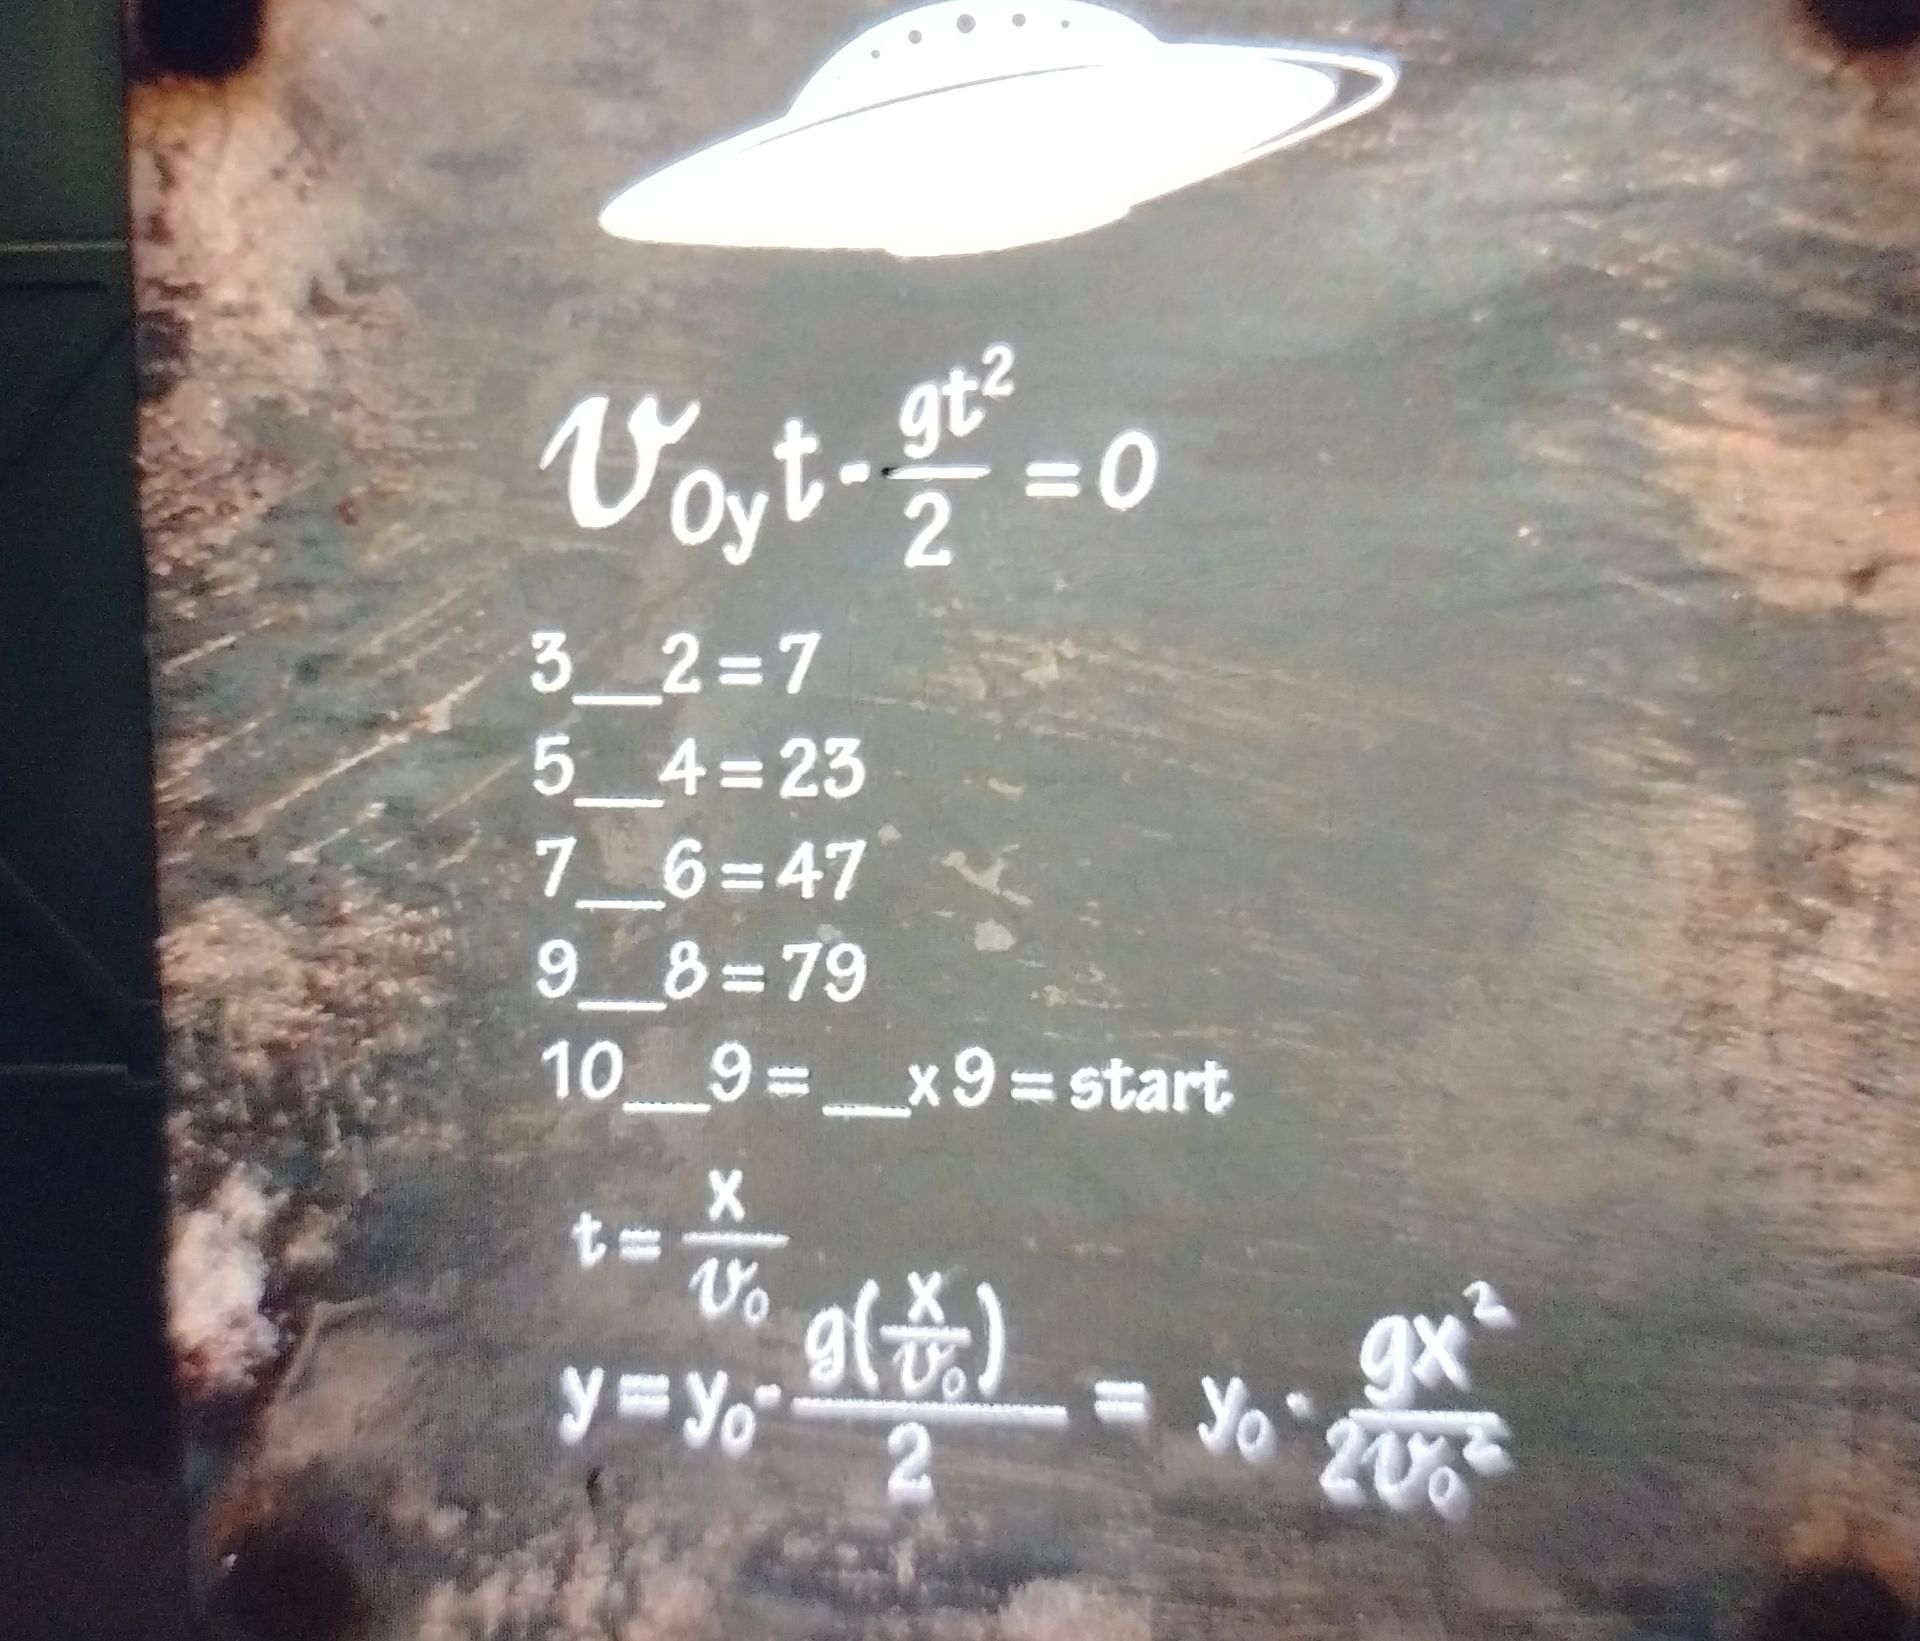 v₀yt - gt²/2 = 0
3__2=7
5__4=23
7__6=47
9__8=79
10__9= __x9=start
t= x/v₀
y=y₀- g(x/v₀)/2 = y₀ - gx²/2v₀²